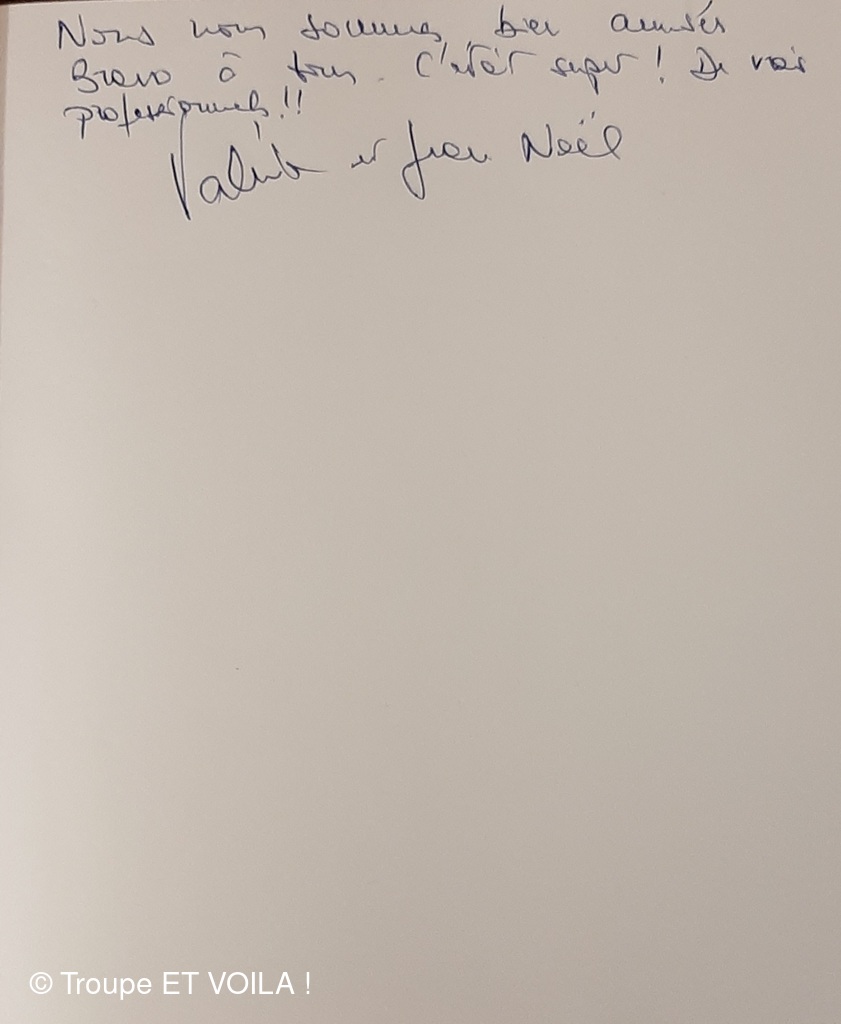 Nous nous sommes bien amusés
Bravo à tous. C'était super ! De vrais
professionnels !!
et Jean Noël
© Troupe ET VOILA !